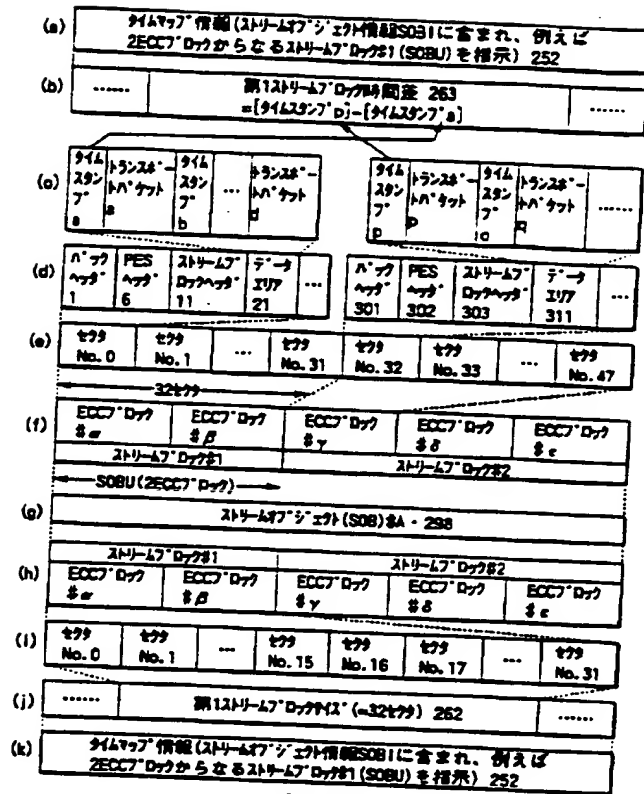 (a) タイムマップ情報(ストリームオブジェクト情報SOBIに含まれ、例えば
2ECCブロックからなるストリームブロック#1(SOBU)を指示) 252
(b) …… 第1ストリームブロック時間差 263 ……
=[タイムスタンプp]-[タイムスタンプa]
(c) タイムスタンプ a トランスポートパケット a タイムスタンプ b … トランスポートパケット d
タイムスタンプ p トランスポートパケット p タイムスタンプ q トランスポートパケット q ……
(d) パックヘッダ 1 PESヘッダ 6 ストリームブロックヘッダ 11 データエリア 21 …
パックヘッダ 301 PESヘッダ 302 ストリームブロックヘッダ 303 データエリア 311 …
(e) セクタ No.0 セクタ No.1 … セクタ No.31 セクタ No.32 セクタ No.33 … セクタ No.47
32セクタ
(f) ECCブロック #α ECCブロック #β ECCブロック #γ ECCブロック #δ ECCブロック #ε
ストリームブロック#1 ストリームブロック#2
SOBU(2ECCブロック)
(g) ストリームオブジェクト(SOB)#A・298
ストリームブロック#1 ストリームブロック#2
(h) ECCブロック #α ECCブロック #β ECCブロック #γ ECCブロック #δ ECCブロック #ε
(i) セクタ No.0 セクタ No.1 … セクタ No.15 セクタ No.16 セクタ No.17 … セクタ No.31
(j) …… 第1ストリームブロックサイズ(=32セクタ) 262 ……
(k) タイムマップ情報(ストリームオブジェクト情報SOBIに含まれ、例えば
2ECCブロックからなるストリームブロック#1(SOBU)を指示) 252